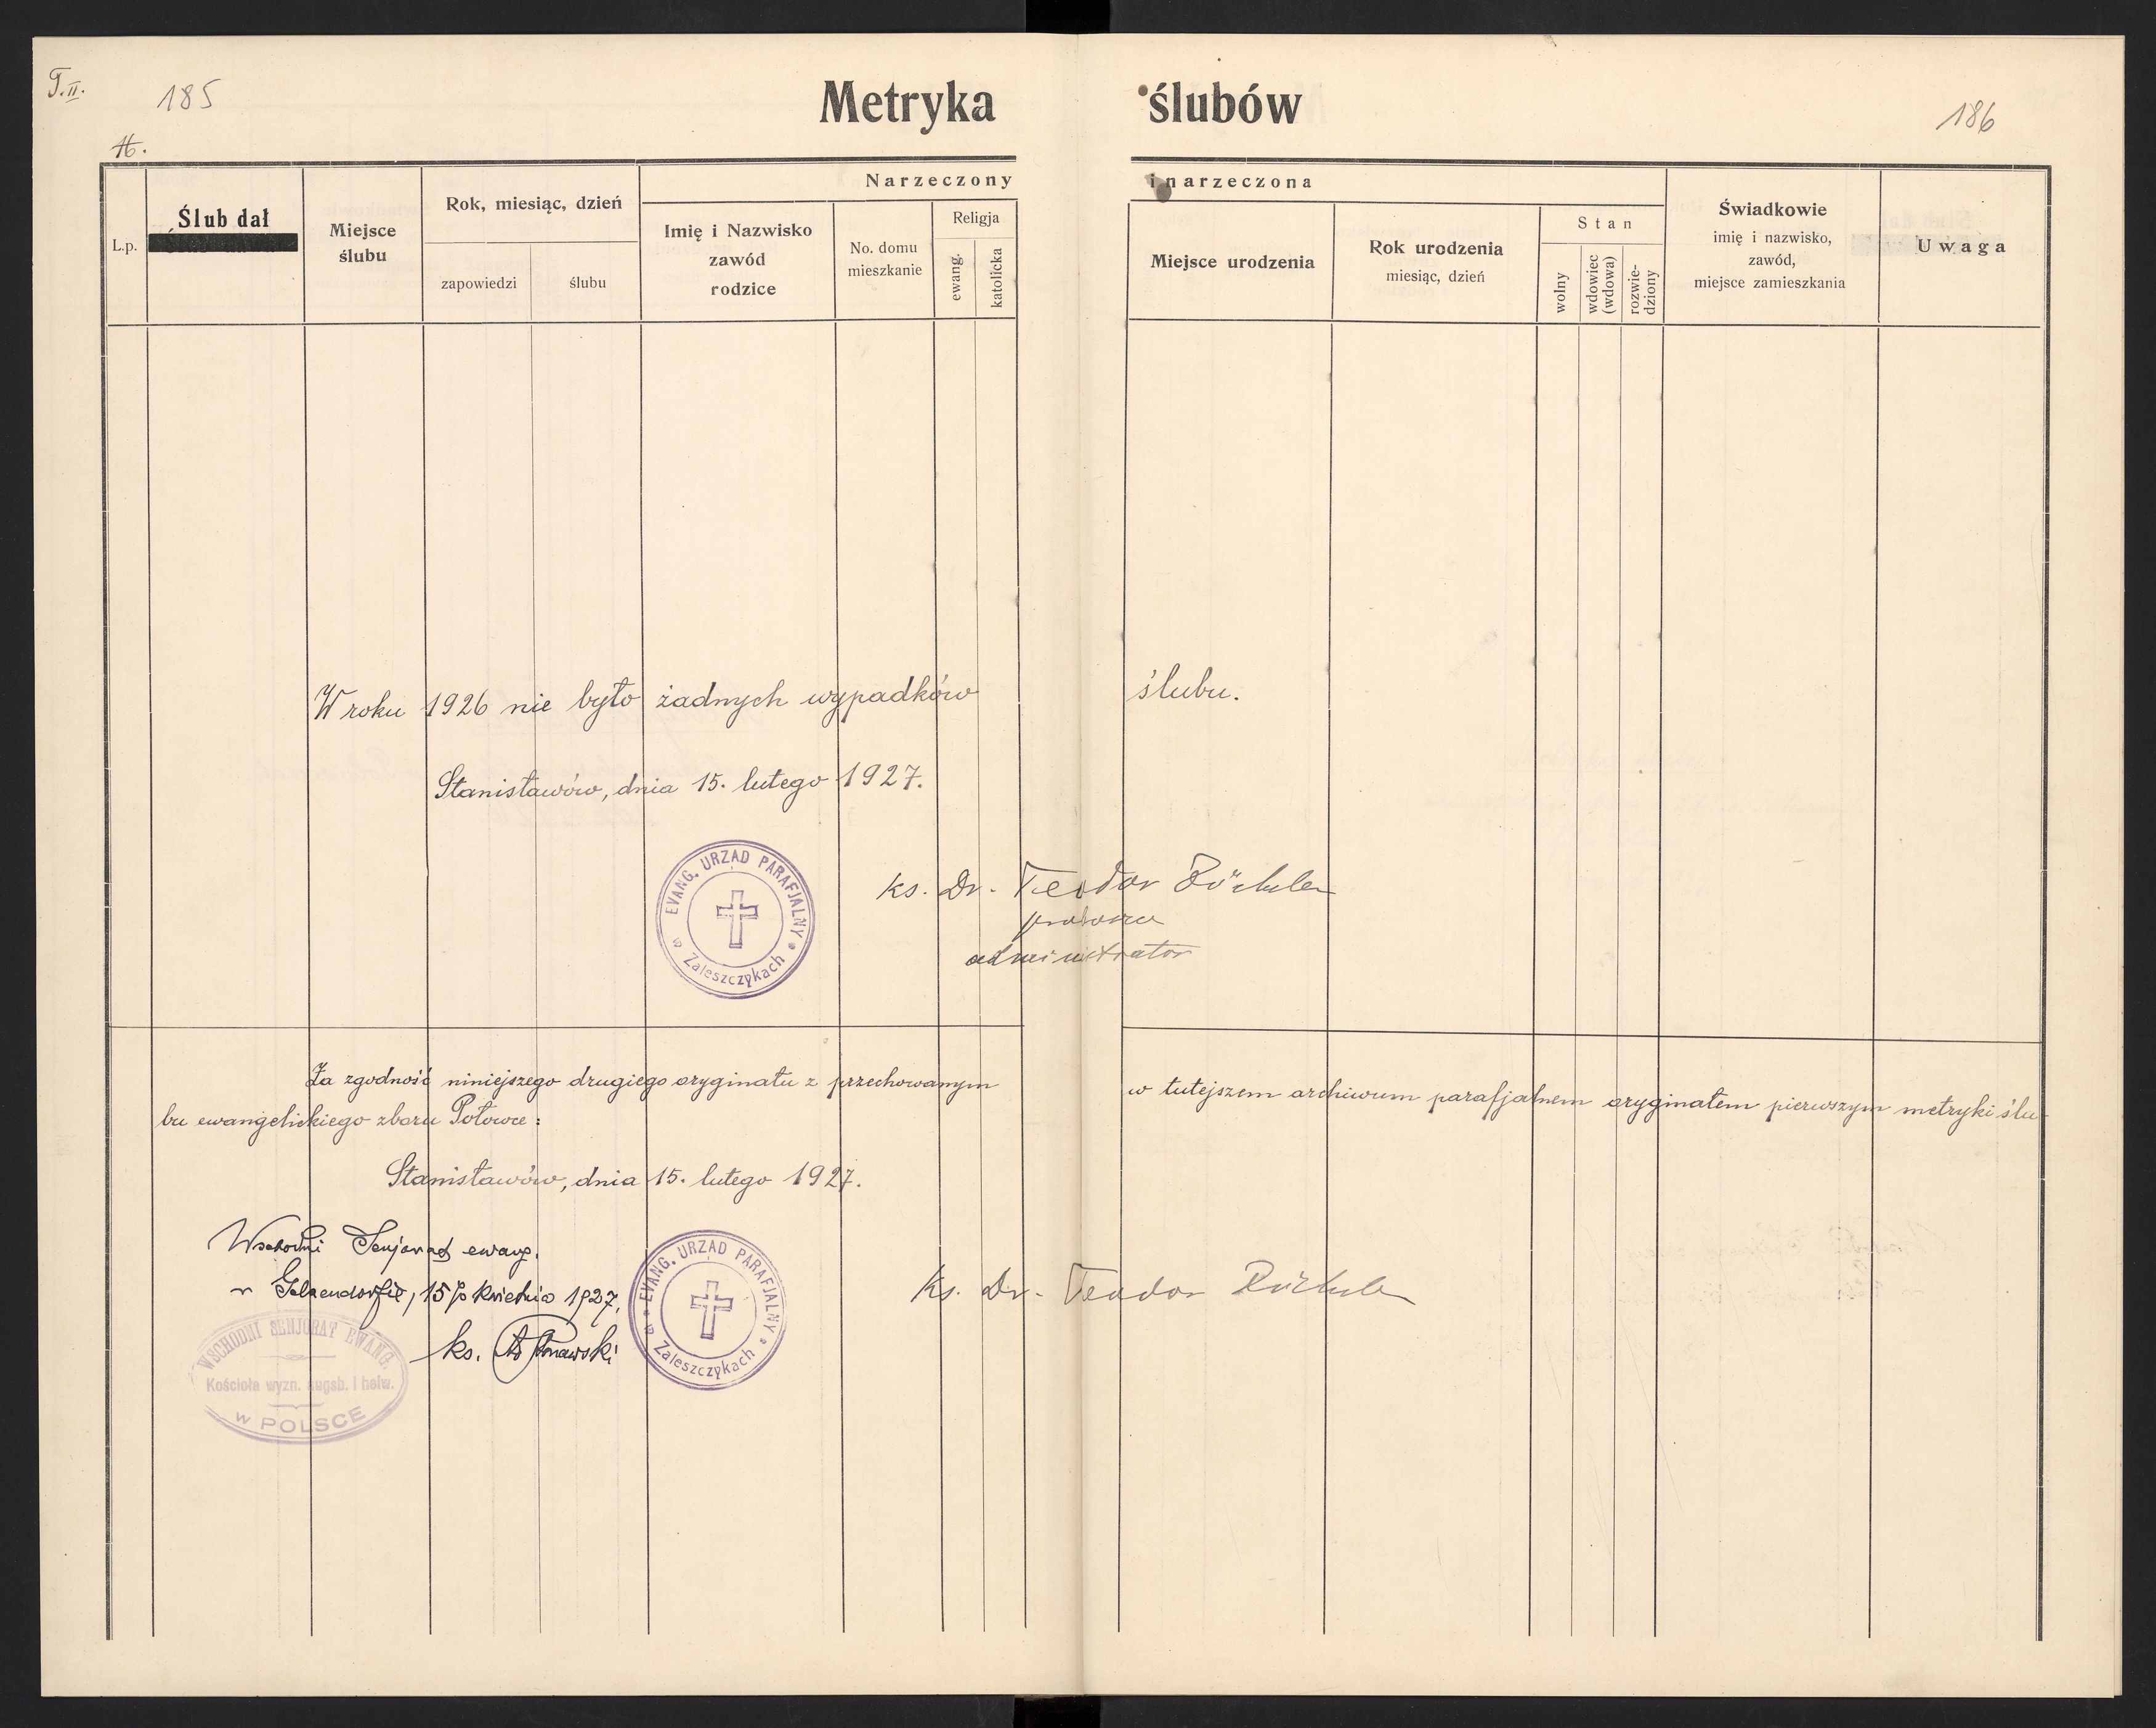 T. II.
185
Metryka ślubów
186
H.
L.p.
Ślub dał
Miejsce
ślubu
Rok, miesiąc, dzień
zapowiedzi
ślubu
Narzeczony i narzeczona
Imię i Nazwisko
zawód
rodzice
No. domu
mieszkanie
Religja
ewang.
katolicka
Miejsce urodzenia
Rok urodzenia
miesiąc, dzień
Stan
wolny
wdowiec
(wdowa)
rozwie-
dziony
Świadkowie
imię i nazwisko,
zawód,
miejsce zamieszkania
Uwaga
W roku 1926 nie było żadnych wypadków ślubu.
Stanisławów, dnia 15. lutego 1927.
EVANG. URZĄD PARAFJALNY
Zaleszczykach
ks. Dr. Teodor
administrator
Za zgodność niniejszego drugiego oryginału z przechowanym w tutejszem archiwum parafjalnem oryginałem pierwszym metryki ślu-
bu ewangelickiego zboru Połowce:
Stanisławów, dnia 15. lutego 1927.
Wschodni Senjorat ewang.
w Gelsendorfie, 15/ kwietnia 1927.
ks.
WSCHODNI SENJORAT EWANG.
Kościoła wyzn. augsb. i helw.
w POLSCE
EVANG. URZĄD PARAFJALNY
Zaleszczykach
ks. Dr. Teodor